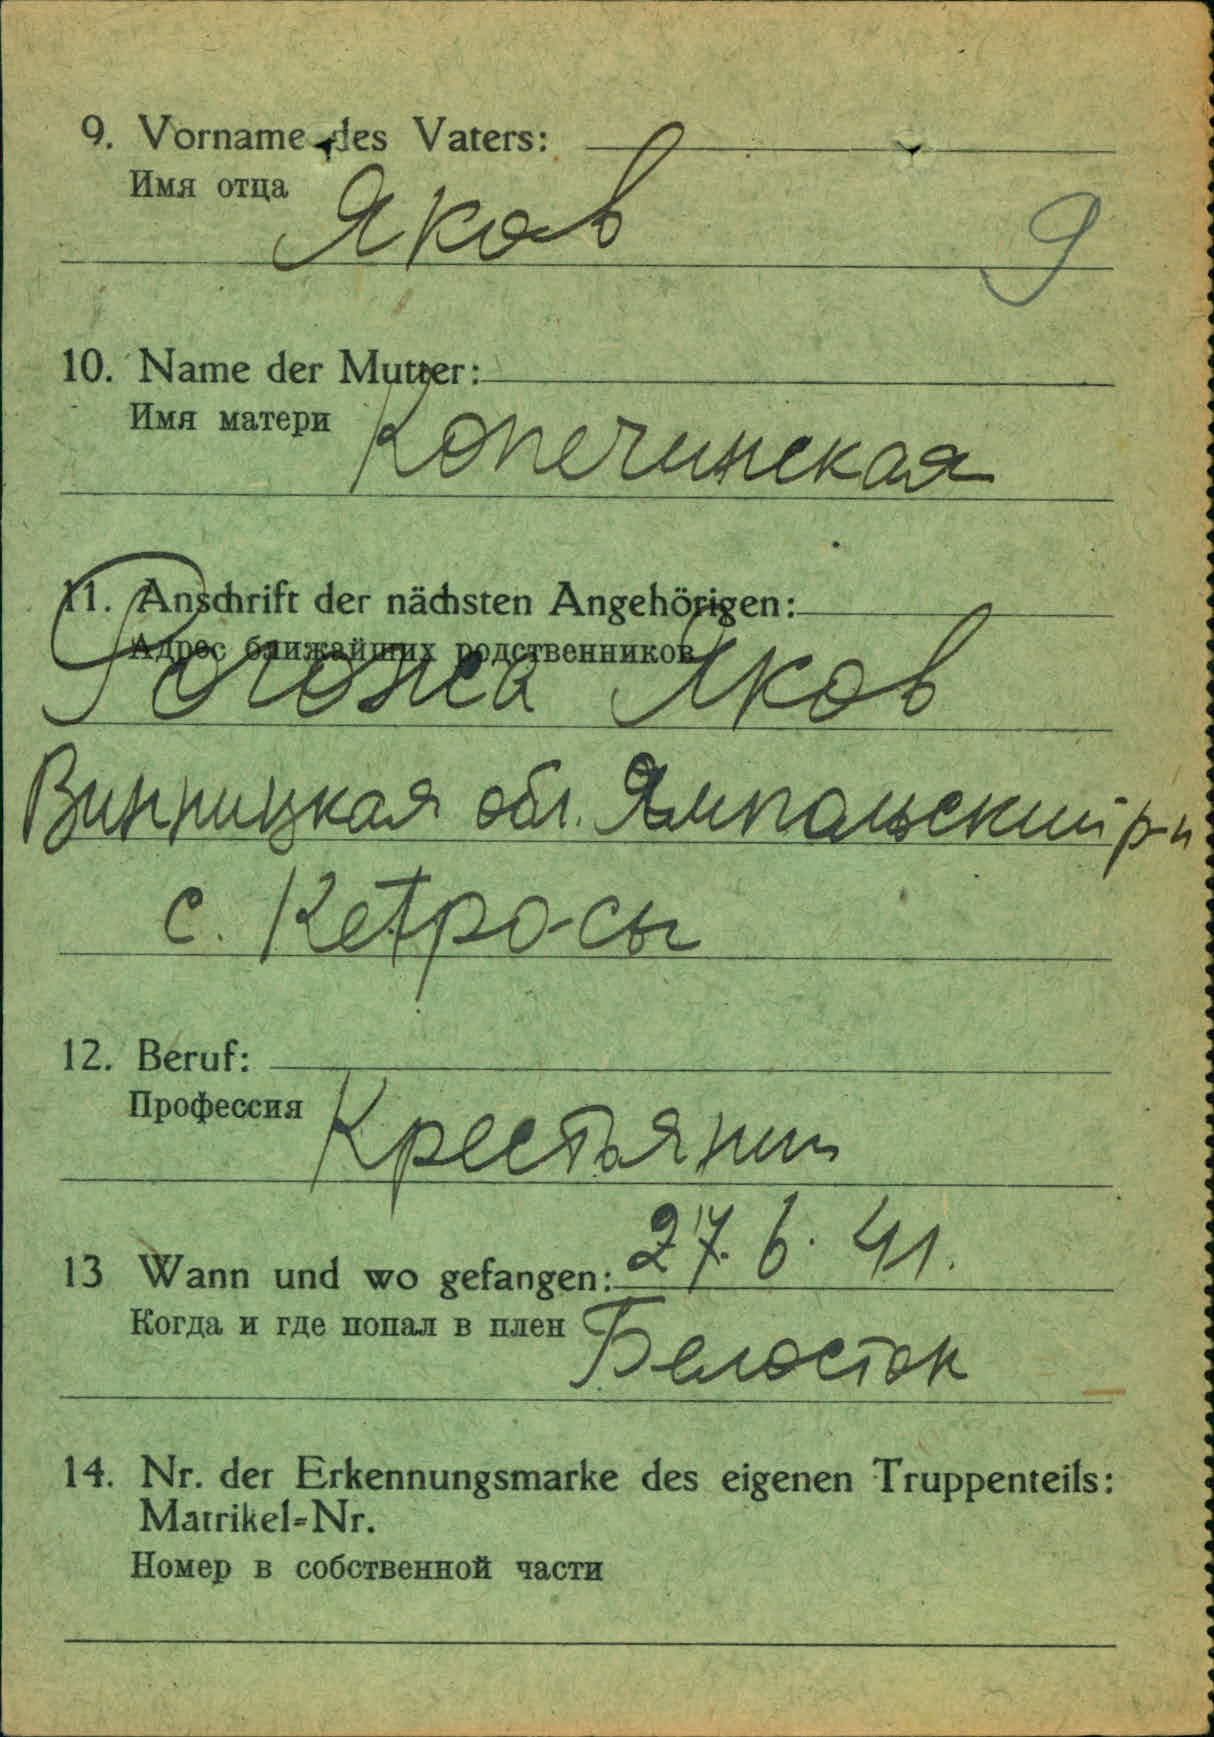 9. Vorname des Vaters:
Имя отца
Яков
9
10. Name der Mutter:
Имя матери Копечинская
11. Anschrift der nächsten Angehörigen:
Адрес ближайших родственников
Яков
Винницкая обл. Ямпольский р-н
с. Кетросы
12. Beruf:
Профессия Крестьянин
13 Wann und wo gefangen: 27. 6. 41.
Когда и где попал в плен Белосток
14. Nr. der Erkennungsmarke des eigenen Truppenteils:
Matrikel=Nr.
Номер в собственной части